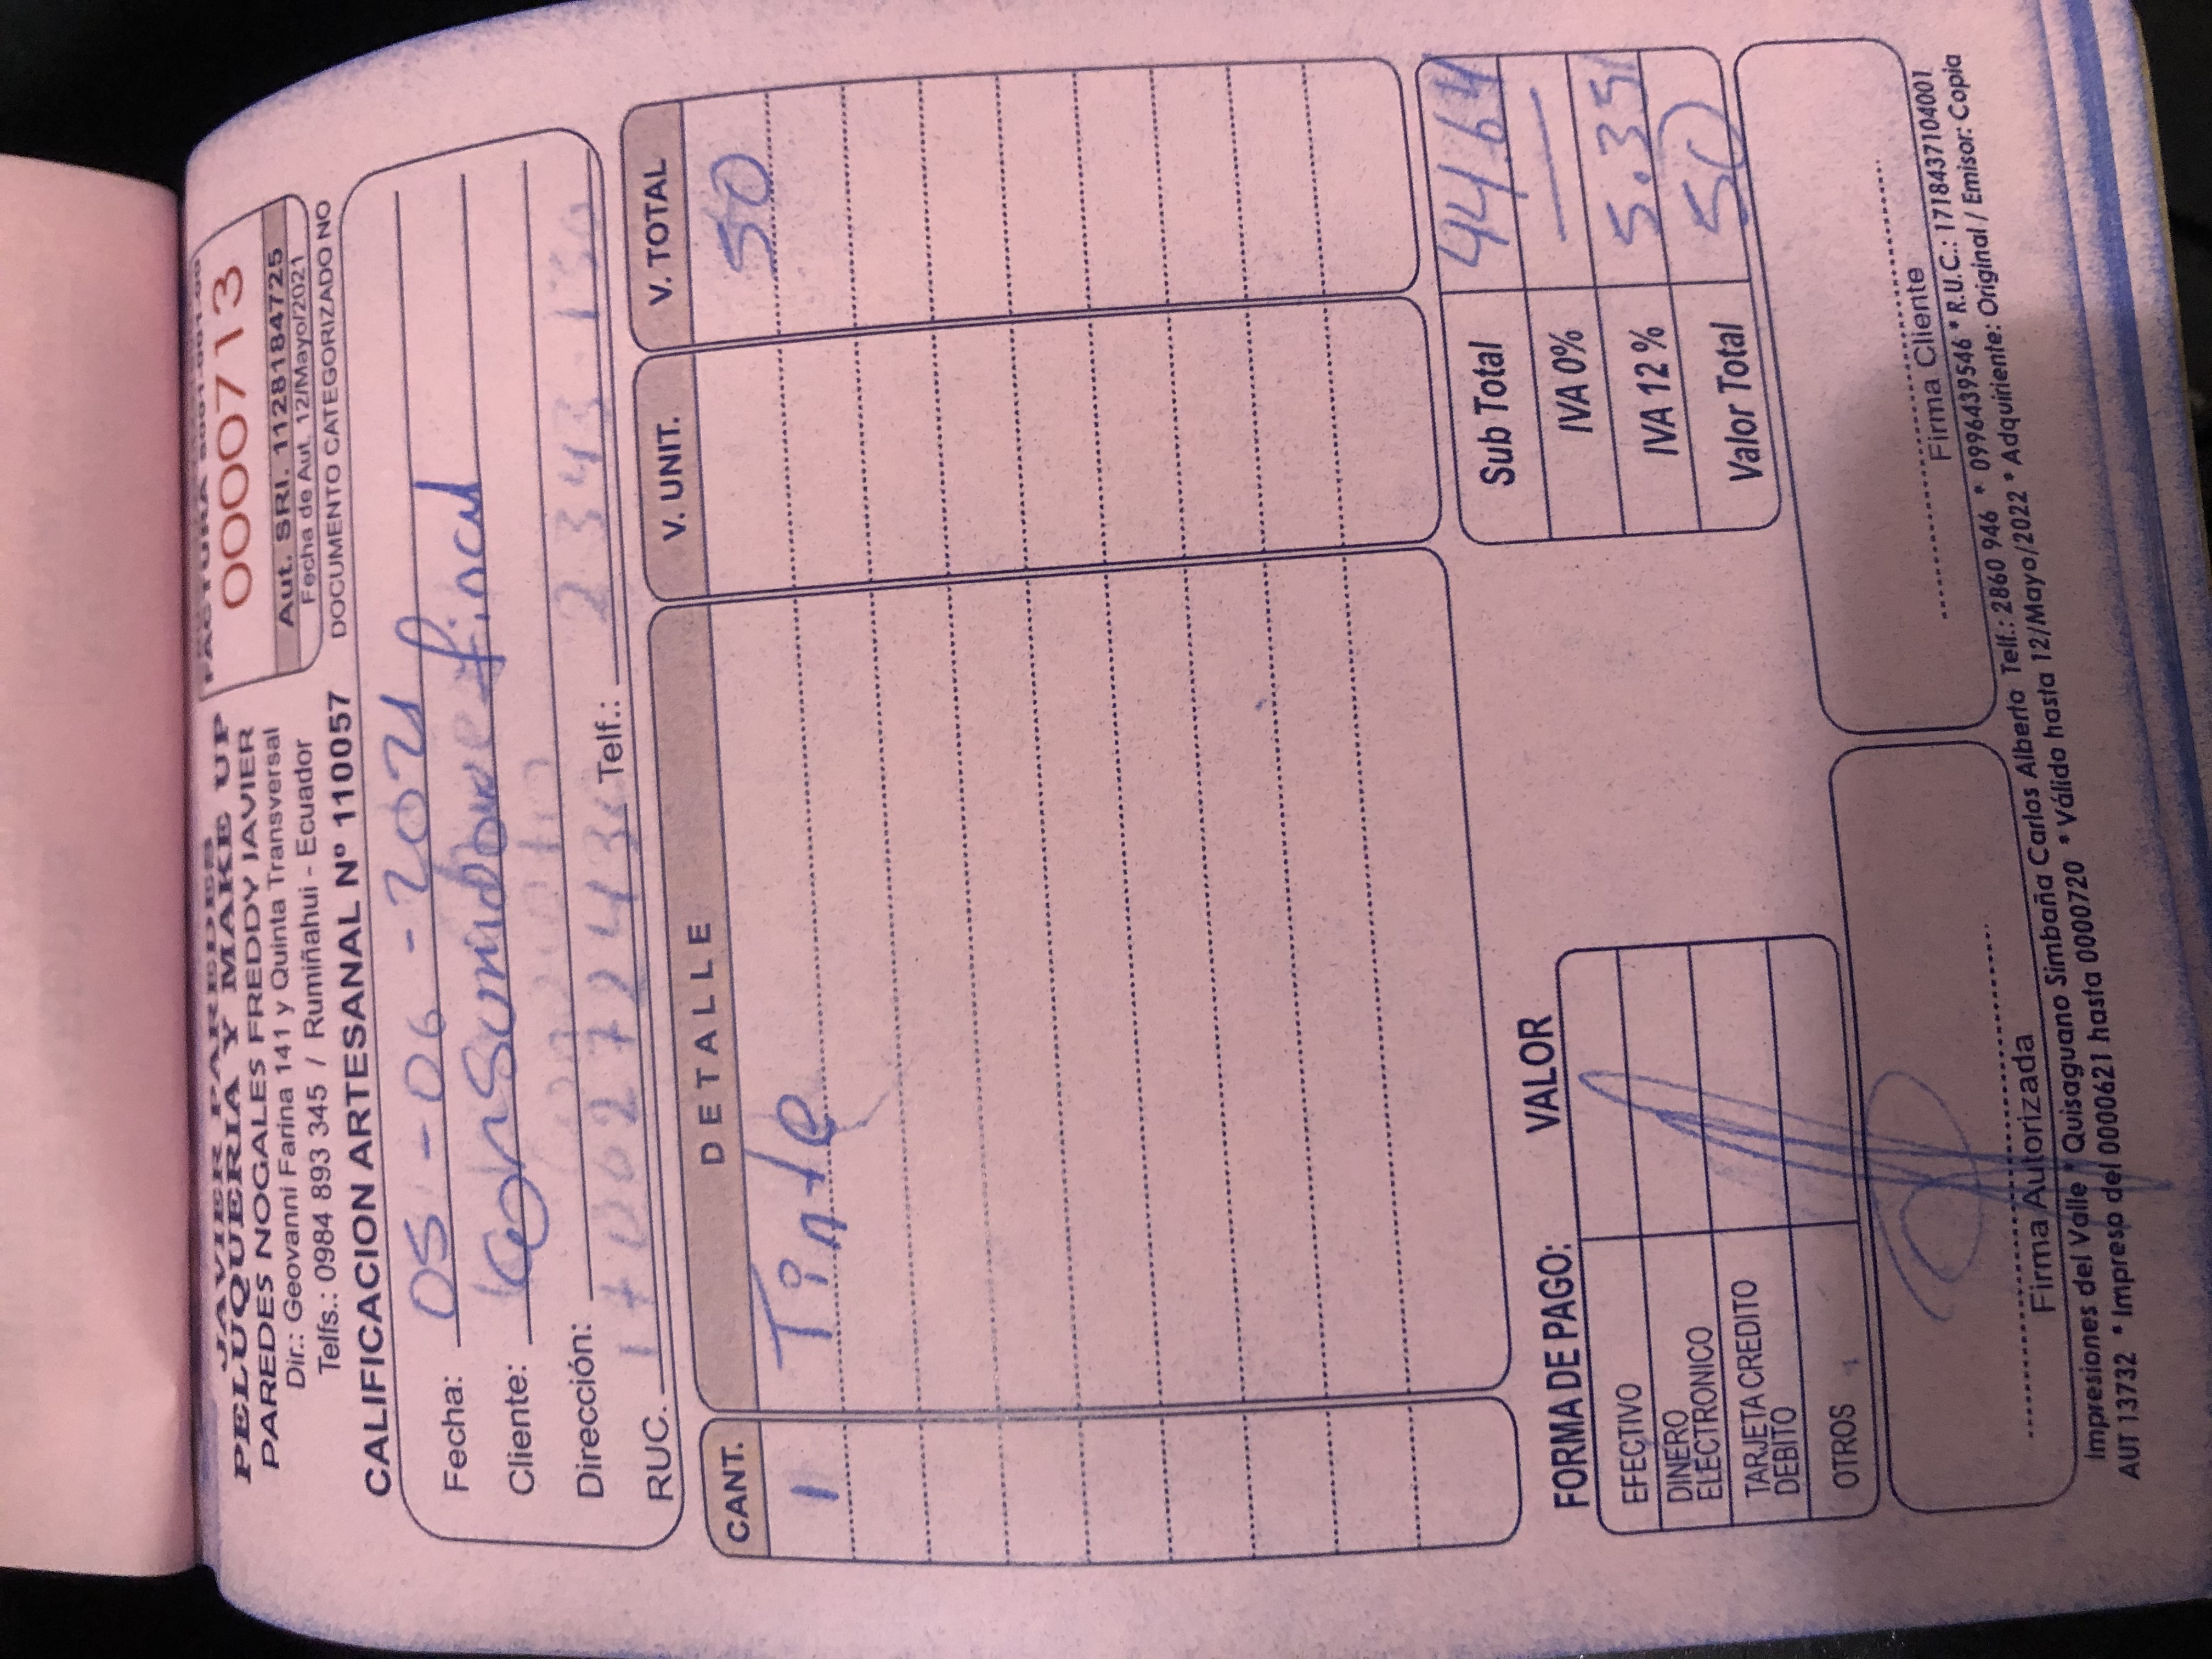 JAVIER PAREDES
PELUQUERIA Y MAKE UP
PAREDES NOGALES FREDDY JAVIER
Dir.: Geovanni Farina 141 y Quinta Transversal
Telfs.: 0984 893 345 / Rumiñahui - Ecuador
CALIFICACION ARTESANAL Nº 110057
FACTURA S001-001-00
0000713
Aut. SRI. 1128184725
Fecha de Aut. 12/Mayo/2021
DOCUMENTO CATEGORIZADO NO
Fecha: 05-06-2021
Cliente: Consumidor final
Dirección:
RUC. Telf.: 2343
CANT. DETALLE V. UNIT. V. TOTAL
1 Tinte 50
Sub Total 44.64
IVA 0% —
IVA 12% 5.35
Valor Total 50
FORMA DE PAGO: VALOR
EFECTIVO
DINERO
ELECTRONICO
TARJETA CREDITO
DEBITO
OTROS
Firma Autorizada
Firma Cliente
Impresiones del Valle * Quisaguano Simbaña Carlos Alberto Telf.: 2860 946 * 0996439546 * R.U.C.: 1718437104001
AUT 13732 * Impreso del 0000621 hasta 0000720 * Válido hasta 12/Mayo/2022 * Adquiriente: Original / Emisor: Copia